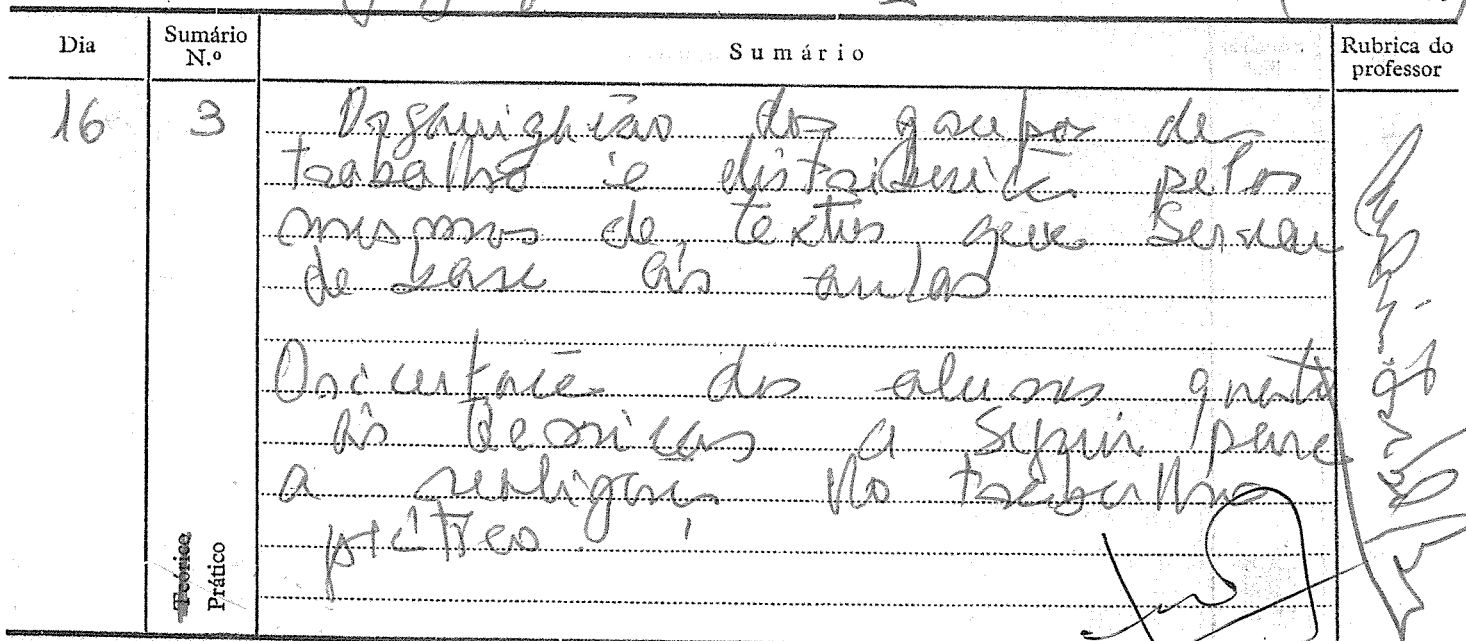 Dia
Sumário N.º
Sumário
Rubrica do professor
16
3
Organização dos grupos de
trabalho e distribuição pelos
mesmos de textos que servem
de base às aulas
Orientação dos alunos quanto
às técnicas a seguir para
a realização do trabalho
prático.
Teórico
Prático